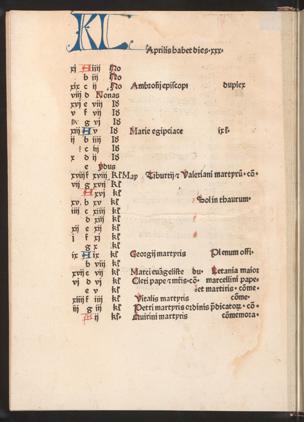 KL Aprilis habet dies · xxx ·
xj A iiij No
b iij No
xix c ij No Ambrosij episcopi duplex
viij d Nonas
xvj e viij Id
v f vij Id
g vj Id
xiij A v Id Marie egiptiace ix l·
ij b iiij Id
c iij Id
x d ij Id
e Ydus
xviij f xviij Kl May Tiburtij ⁊ Valeriani martyrū · cō·
vij g xvij Kl
A xvj Kl
xv b xv Kl Sol in thaurum ·
iiij c xiiij Kl
d xiij Kl
xij e xij Kl
j f xj Kl
g x Kl
ix A ix Kl Georgij martyris Plenum offi·
b viij Kl
xvij c vij Kl Marci euāgeliste du· Letania maior
vj d vj Kl Cleti pape ⁊ mr̄is · cō· marcellini pape
e v Kl et martiris · cōme·
xiiij f iiij Kl Vitalis martyris cōme·
iij g iij Kl Petri martyris ordinis p̄dicatorꝝ · cō·
A ij Kl· Quirini martyris cōmemora·